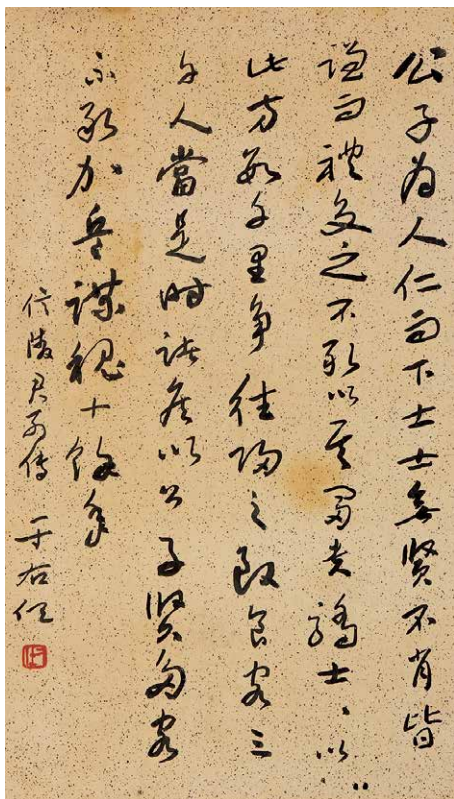 公子為人仁而下士士無賢不肖皆
謙而禮交之不敢以其富貴驕士、以
此方數千里爭往歸之致食客三
千人當是時諸侯以公子賢多客
不敢加兵謀魏十餘年
信陵君列傳 于右任